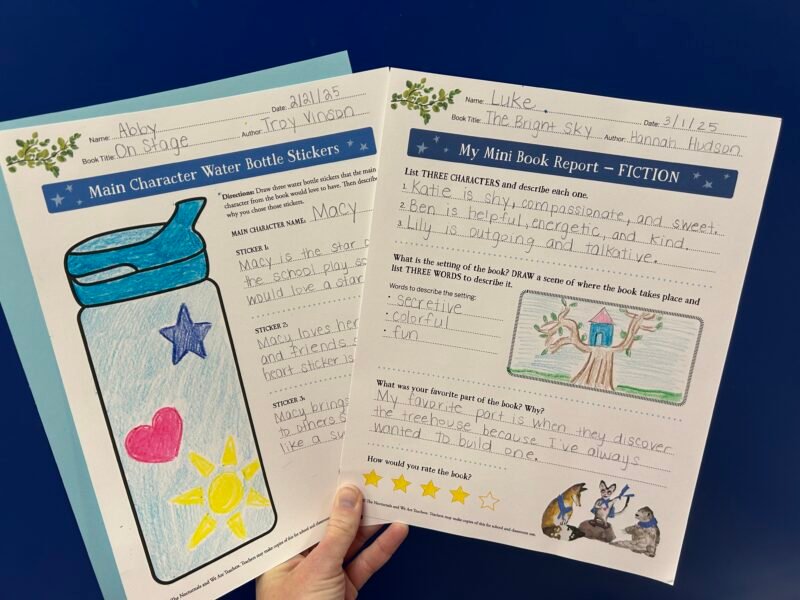 Name: Abby
Date: 2/21/25
Book Title: On Stage
Author: Troy Vinson
Main Character Water Bottle Stickers
Directions: Draw three water bottle stickers that the main
character from the book would love to have. Then describe
why you chose those stickers.
MAIN CHARACTER NAME: Macy
STICKER 1:
Macy is the star
the school play so
would love a star
STICKER 2:
Macy loves her
and friends
heart sticker is
STICKER 3:
Macy brings
to others
like a su
The Nocturnals and We Are Teachers. Teachers may make copies of this for school and classroom
Name: Luke
Date: 3/1/25
Book Title: The Bright Sky
Author: Hannah Hudson
My Mini Book Report – FICTION
List THREE CHARACTERS and describe each one.
1. Katie is shy, compassionate, and sweet.
2. Ben is helpful, energetic, and kind.
3. Lily is outgoing and talkative.
What is the setting of the book? DRAW a scene of where the book takes place and
list THREE WORDS to describe it.
Words to describe the setting:
• secretive
• colorful
• fun
What was your favorite part of the book? Why?
My favorite part is when they discover
the treehouse because I've always
wanted to build one.
How would you rate the book?
The Nocturnals and We Are Teachers. Teachers may make copies of this for school and classroom use.